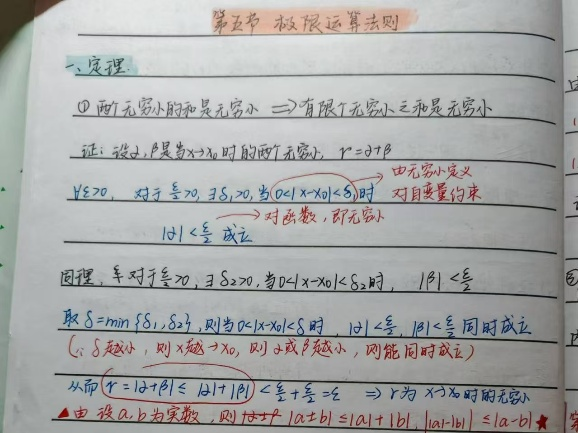 第五节 极限运算法则
一、定理.
① 两个无穷小的和是无穷小 ⟹ 有限个无穷小之和是无穷小
证: 设α, β是当x→x₀时的两个无穷小, r=α+β
由无穷小定义
∀ε>0, 对于 ε/2>0, ∃δ₁>0, 当0<|x-x₀|<δ₁时 对自变量约束
|α|<ε/2 成立 → 对函数, 即无穷小
同理, 对于ε/2>0, ∃δ₂>0, 当0<|x-x₀|<δ₂时, |β|<ε/2
取δ=min{δ₁,δ₂}, 则当0<|x-x₀|<δ时, |α|<ε/2, |β|<ε/2 同时成立
(∵δ越小, 则x越→x₀, 则α或β越小, 则能同时成立)
从而 r=|α+β|≤|α|+|β|<ε/2+ε/2=ε ⟹ r为x→x₀时的无穷小
▲由 设a,b为实数, 则 |a±b|≤|a|+|b|, ||a|-|b||≤|a-b| ★